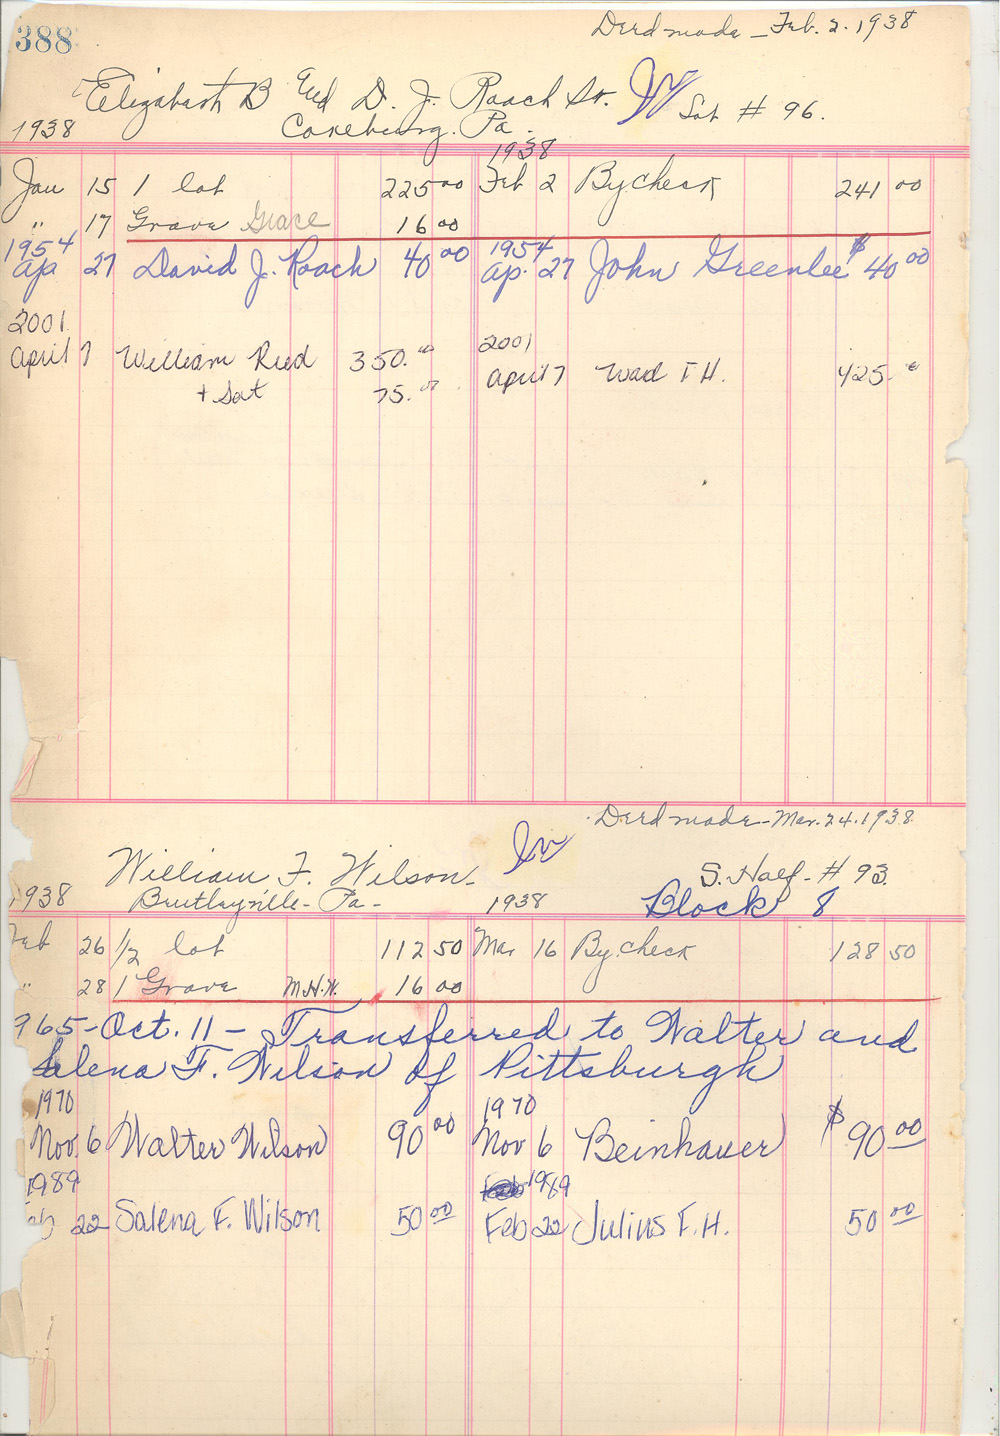 388
Deed made - Feb. 2. 1938
Elizabeth B And D. J. Roach Sr. Lot # 96.
1938 Cokeburg. Pa.
1938
Jan 15 1 lot 225 00 Feb 2 By check 241 00
" 17 Grave Grace 16 00
1954 1954
Ap 27 David J. Roach 40 00 Ap. 27 John Greenlee $ 40 00
2001 2001
April 7 William Reed 350. 00 April 7 Wad F H. 425.
+ Sat 75. 00
Deed made - Mar. 24. 1938.
William F. Wilson - S. Half - # 93.
1938 Pa - 1938 Block 8
Feb 26 1/2 lot 112 50 Mar 16 By check 128 50
" 28 1 Grave M.H.W. 16 00
965 - Oct. 11 - Transferred to Walter and
Salena F. Wilson of Pittsburgh
1970 1970
Nov. 6 Walter Wilson 90 00 Nov 6 Beinhauer $ 90 00
1989 1989
Feb 22 Salena F. Wilson 50 00 Feb 22 Julius F. H. 50 00